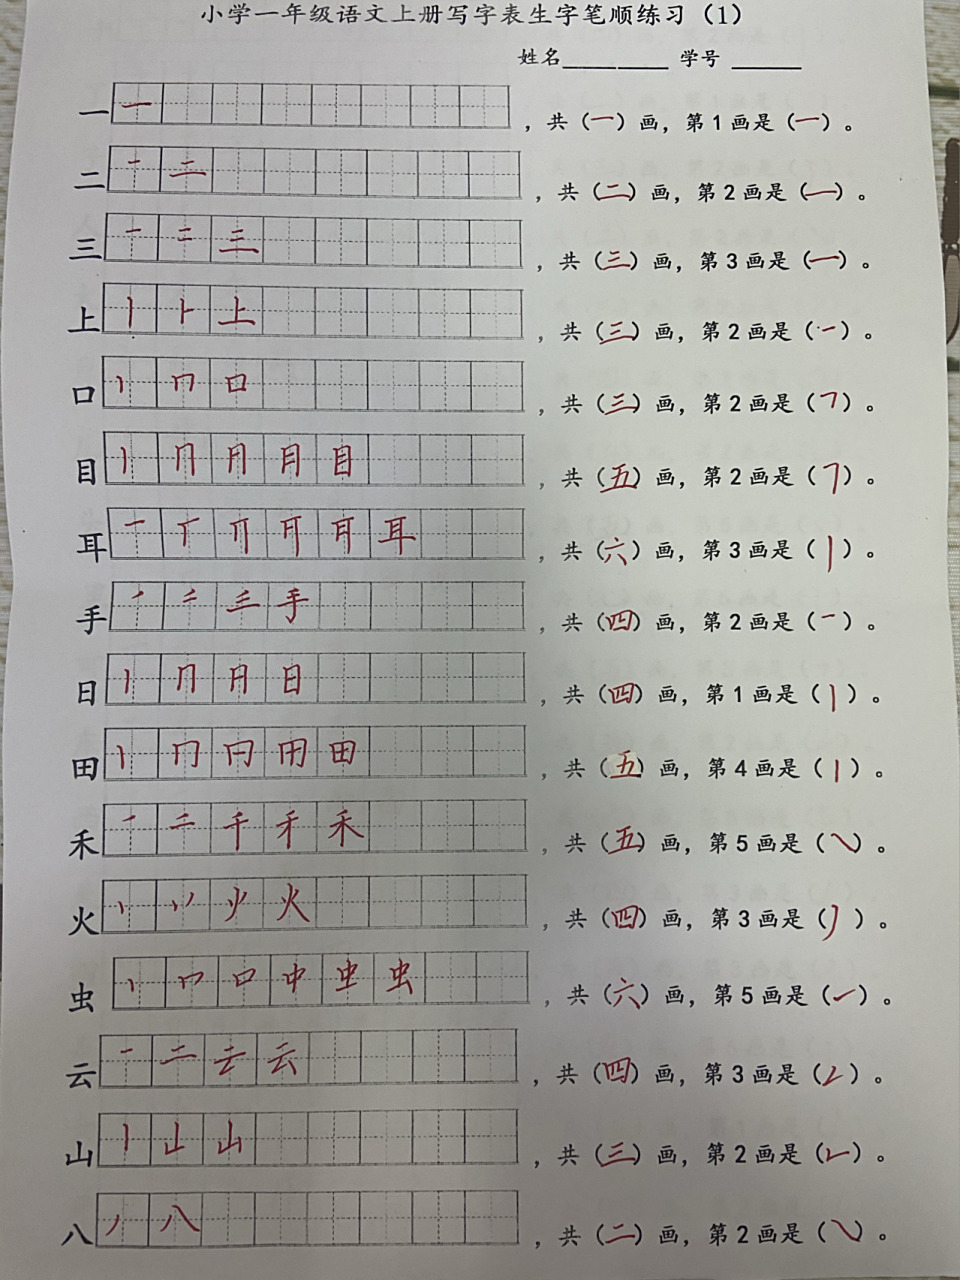 小学一年级语文上册写字表生字笔顺练习（1）
姓名________ 学号 ______
一 一 ，共（一）画，第1画是（一）。
二 一 二 ，共（二）画，第2画是（一）。
三 一 二 三 ，共（三）画，第3画是（一）。
上 丨 ⺊ 上 ，共（三）画，第2画是（一）。
口 丨 冂 口 ，共（三）画，第2画是（㇕）。
目 丨 冂 月 目 ，共（五）画，第2画是（㇆）。
耳 一 丅 耳 ，共（六）画，第3画是（丨）。
手 ㇒ 三 手 ，共（四）画，第2画是（一）。
日 丨 冂 日 ，共（四）画，第1画是（丨）。
田 丨 冂 田 ，共（五）画，第4画是（丨）。
禾 一 二 千 禾 ，共（五）画，第5画是（㇏）。
火 丶 丷 火 ，共（四）画，第3画是（丿）。
虫 丨 口 中 虫 ，共（六）画，第5画是（㇀）。
云 一 二 云 ，共（四）画，第3画是（㇜）。
山 丨 山 ，共（三）画，第2画是（㇗）。
八 丿 八 ，共（二）画，第2画是（㇏）。